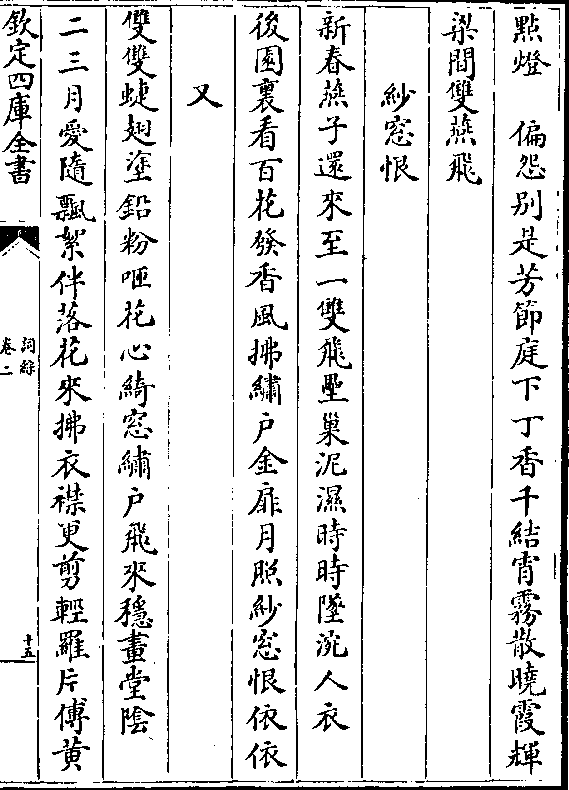 點燈　偏怨别是芳節庭下丁香千結宵霧散曉霞輝
梁間雙燕飛
紗窓恨
新春燕子還來至一雙飛壘巢泥濕時時墜涴人衣
後園裏看百花發香風拂繡户金扉月照紗窓恨依依
又
雙雙蜨翅塗鉛粉咂花心綺窓繡户飛來穏畫堂陰
二三月愛隨飄絮伴落花來拂衣襟更剪輕羅片傅黄
欽定四庫全書
詞綜
卷二
十五